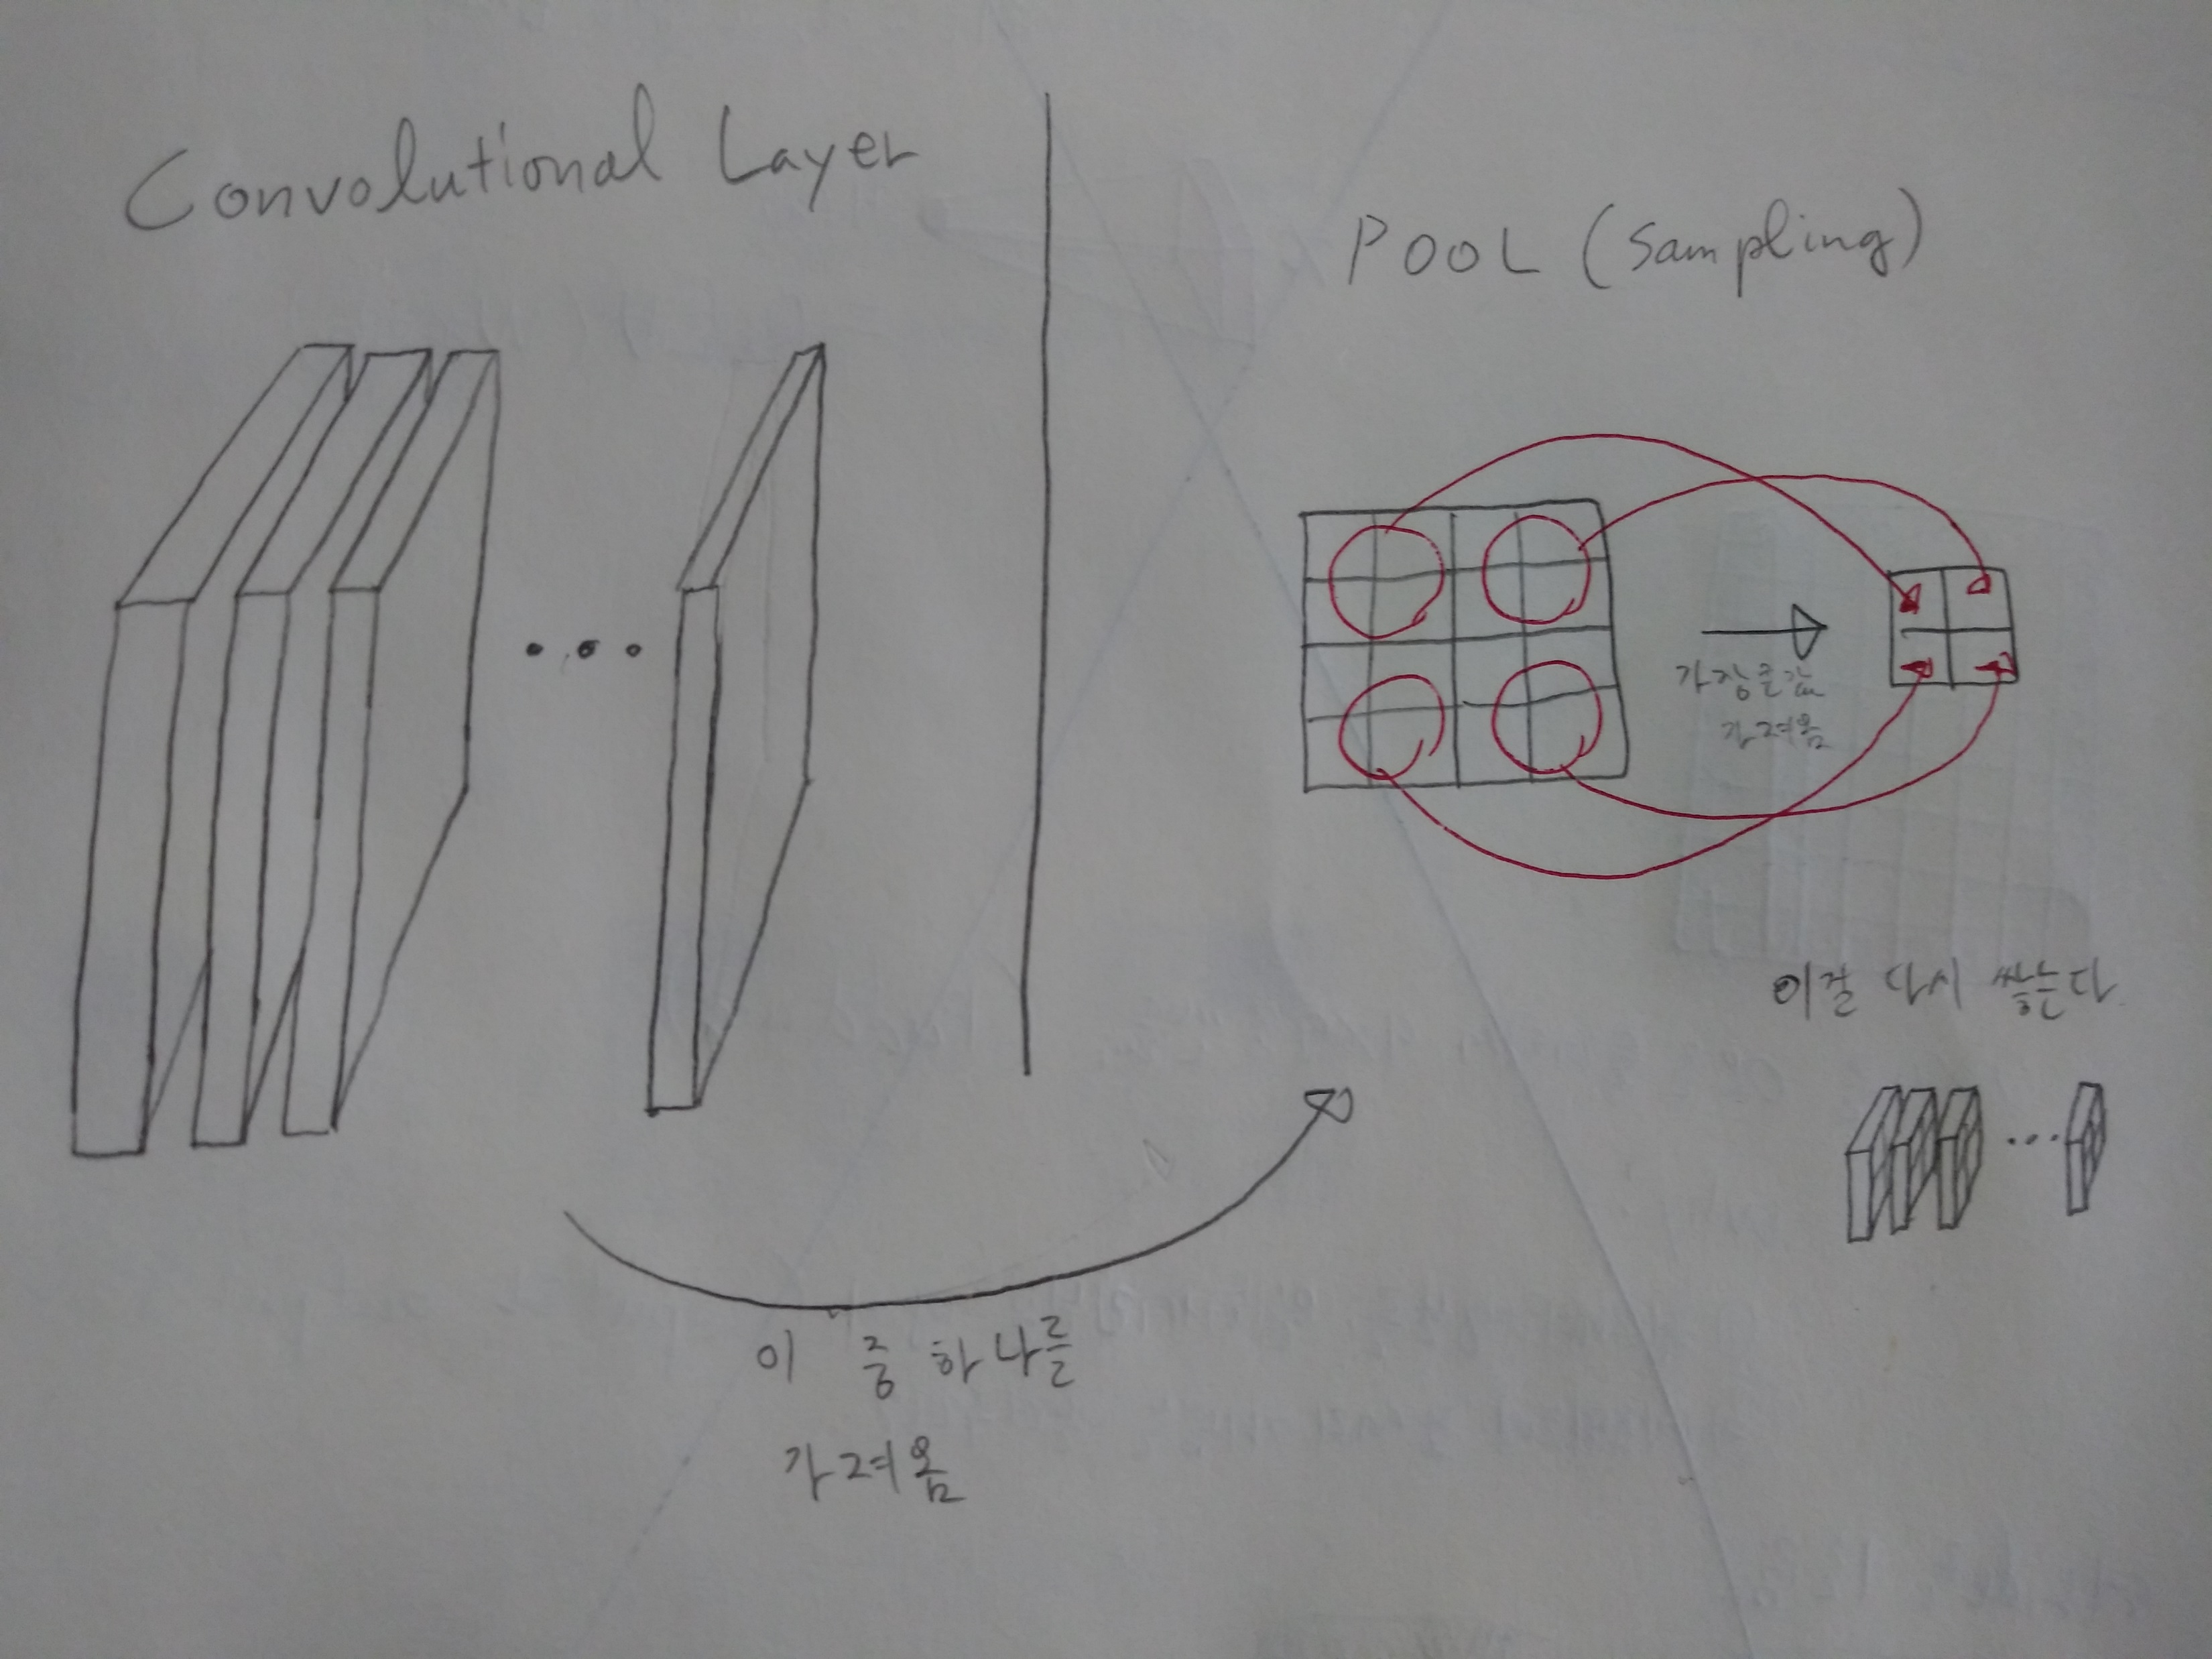 Convolutional Layer
POOL (Sampling)
가장 큰 값
가져옴
이걸 다시 쌓는다
이 중 하나를
가져옴